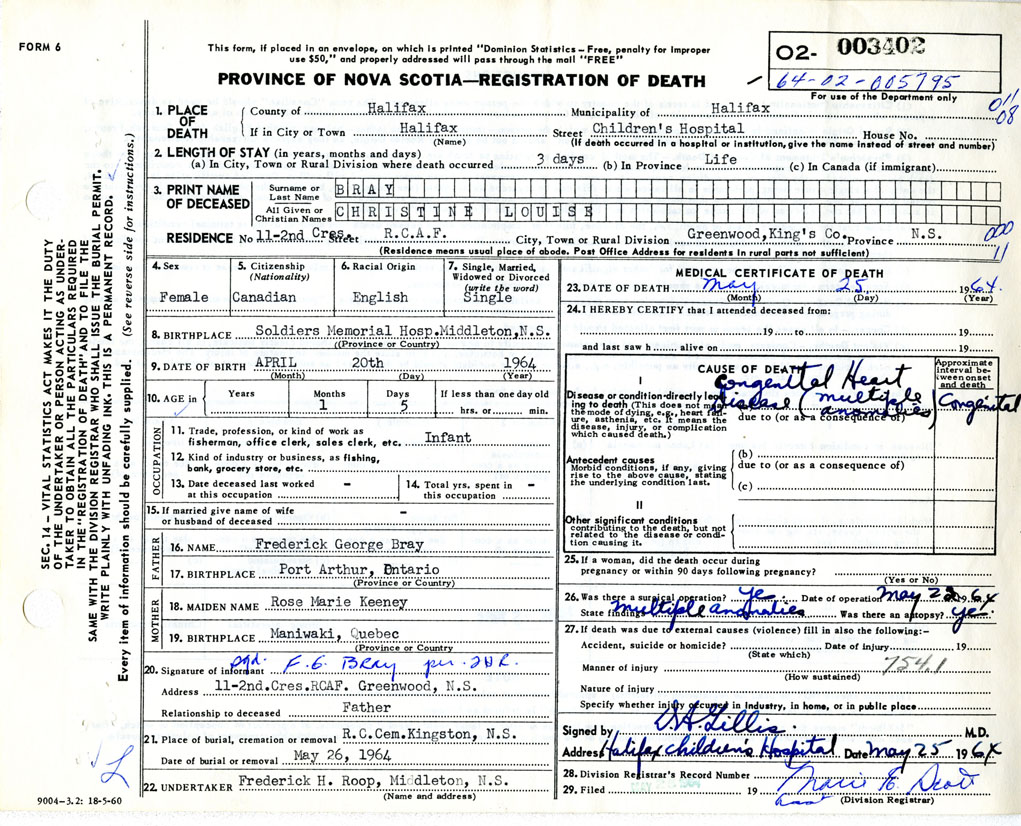 FORM 6
This form, if placed in an envelope, on which is printed "Dominion Statistics – Free, penalty for improper
use $50," and properly addressed will pass through the mail "FREE"
PROVINCE OF NOVA SCOTIA—REGISTRATION OF DEATH
02- 003402
64-02-005795
For use of the Department only
011
08
1. PLACE OF DEATH
County of Halifax Municipality of Halifax
If in City or Town Halifax Street Children's Hospital House No.
(Name) (If death occurred in a hospital or institution, give the name instead of street and number)
2. LENGTH OF STAY (in years, months and days)
(a) In City, Town or Rural Division where death occurred 3 days (b) In Province Life (c) In Canada (if immigrant)
3. PRINT NAME OF DECEASED
Surname or Last Name BRAY
All Given or Christian Names CHRISTINE LOUISE
RESIDENCE No 11-2nd Cres. Street R.C.A.F. City, Town or Rural Division Greenwood, King's Co. Province N.S.
(Residence means usual place of abode. Post Office Address for residents in rural parts not sufficient)
000
11
4. Sex
Female
5. Citizenship
(Nationality)
Canadian
6. Racial Origin
English
7. Single, Married,
Widowed or Divorced
(write the word)
Single
8. BIRTHPLACE Soldiers Memorial Hosp. Middleton, N.S.
(Province or Country)
9. DATE OF BIRTH APRIL 20th 1964
(Month) (Day) (Year)
10. AGE in Years Months Days If less than one day old
1 5 hrs. or min.
OCCUPATION
11. Trade, profession, or kind of work as
fisherman, office clerk, sales clerk, etc. Infant
12. Kind of industry or business, as fishing,
bank, grocery store, etc.
13. Date deceased last worked
at this occupation -
14. Total yrs. spent in
this occupation -
15. If married give name of wife
or husband of deceased -
FATHER
16. NAME Frederick George Bray
17. BIRTHPLACE Port Arthur, Ontario
(Province or Country)
MOTHER
18. MAIDEN NAME Rose Marie Keeney
19. BIRTHPLACE Maniwaki, Quebec
(Province or Country)
20. Signature of informant sgd. F. G. BRAY per
Address 11-2nd.Cres.RCAF. Greenwood, N.S.
Relationship to deceased Father
21. Place of burial, cremation or removal R.C.Cem.Kingston, N.S.
Date of burial or removal May 26, 1964
22. UNDERTAKER Frederick H. Roop, Middleton, N.S.
(Name and address)
9004–3.2: 18-5-60
MEDICAL CERTIFICATE OF DEATH
23. DATE OF DEATH May 25 1964
(Month) (Day) (Year)
24. I HEREBY CERTIFY that I attended deceased from:
19 to 19
and last saw h alive on 19
CAUSE OF DEATH
Approximate
interval between onset
and death
I
Disease or condition-directly leading to death (This does not mean
the mode of dying, e.g., heart failure, asthenia, etc. It means the
disease, injury, or complication
which caused death.)
Congenital Heart
Disease (multiple
anomalies)
due to (or as a consequence of)
Congenital
Antecedent causes
Morbid conditions, if any, giving
rise to the above cause, stating
the underlying condition last.
(b)
due to (or as a consequence of)
(c)
II
Other significant conditions
contributing to the death, but not
related to the disease or condition causing it.
25. If a woman, did the death occur during
pregnancy or within 90 days following pregnancy?
(Yes or No)
26. Was there a surgical operation? Yes Date of operation May 22 1964
State findings multiple anomalies Was there an autopsy? yes
27. If death was due to external causes (violence) fill in also the following:–
Accident, suicide or homicide? Date of injury 19
(State which)
Manner of injury 754.1
(How sustained)
Nature of injury
Specify whether injury occurred in industry, in home, or in public place
Signed by Gillis M.D.
Address Halifax Children's Hospital Date May 25 1964
28. Division Registrar's Record Number
29. Filed 19 Marie E. Scott
(Division Registrar)
SEC. 14 – VITAL STATISTICS ACT MAKES IT THE DUTY
OF THE UNDERTAKER OR PERSON ACTING AS UNDERTAKER TO OBTAIN ALL THE PARTICULARS REQUIRED
IN THE "REGISTRATION OF DEATH" AND TO FILE THE
SAME WITH THE DIVISION REGISTRAR WHO SHALL ISSUE THE BURIAL PERMIT.
WRITE PLAINLY WITH UNFADING INK. THIS IS A PERMANENT RECORD.
Every item of information should be carefully supplied. (See reverse side for instructions.)